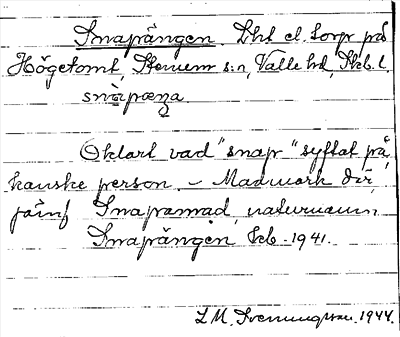 Snapängen. Lht el. torp på
Högetomt, Stenum s:n, Valle hd, Skb. l.
Oklart vad "snap" syftat på,
kanske person. – Madmark där,
jämf Snapamad, naturnamn
Snapängen Skb. 1941.
L M. Svenungsson. 1944.